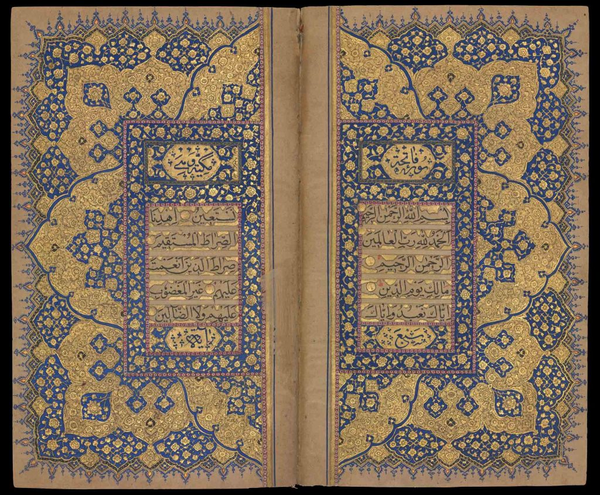 فاتحة
بسم الله الرحمن الرحيم
الحمد لله رب العالمين
الرحمن الرحيم
مالك يوم الدين
اياك نعبد واياك
نستعين اهدنا
الصراط المستقيم
صراط الذين انعمت
عليهم غير المغضوب
عليهم ولا الضالين